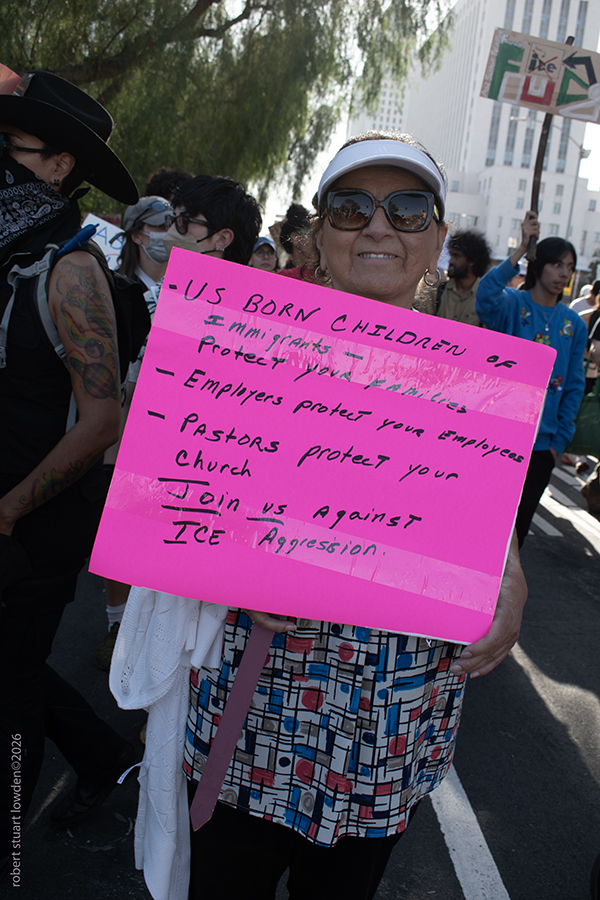 FUCK
ice
- US BORN CHILDREN OF
Immigrants —
Protect your Families
- Employers protect your Employees
- PASTORS protect your
Church
Join us Against
ICE Aggression.
robert stuart lowden©2026